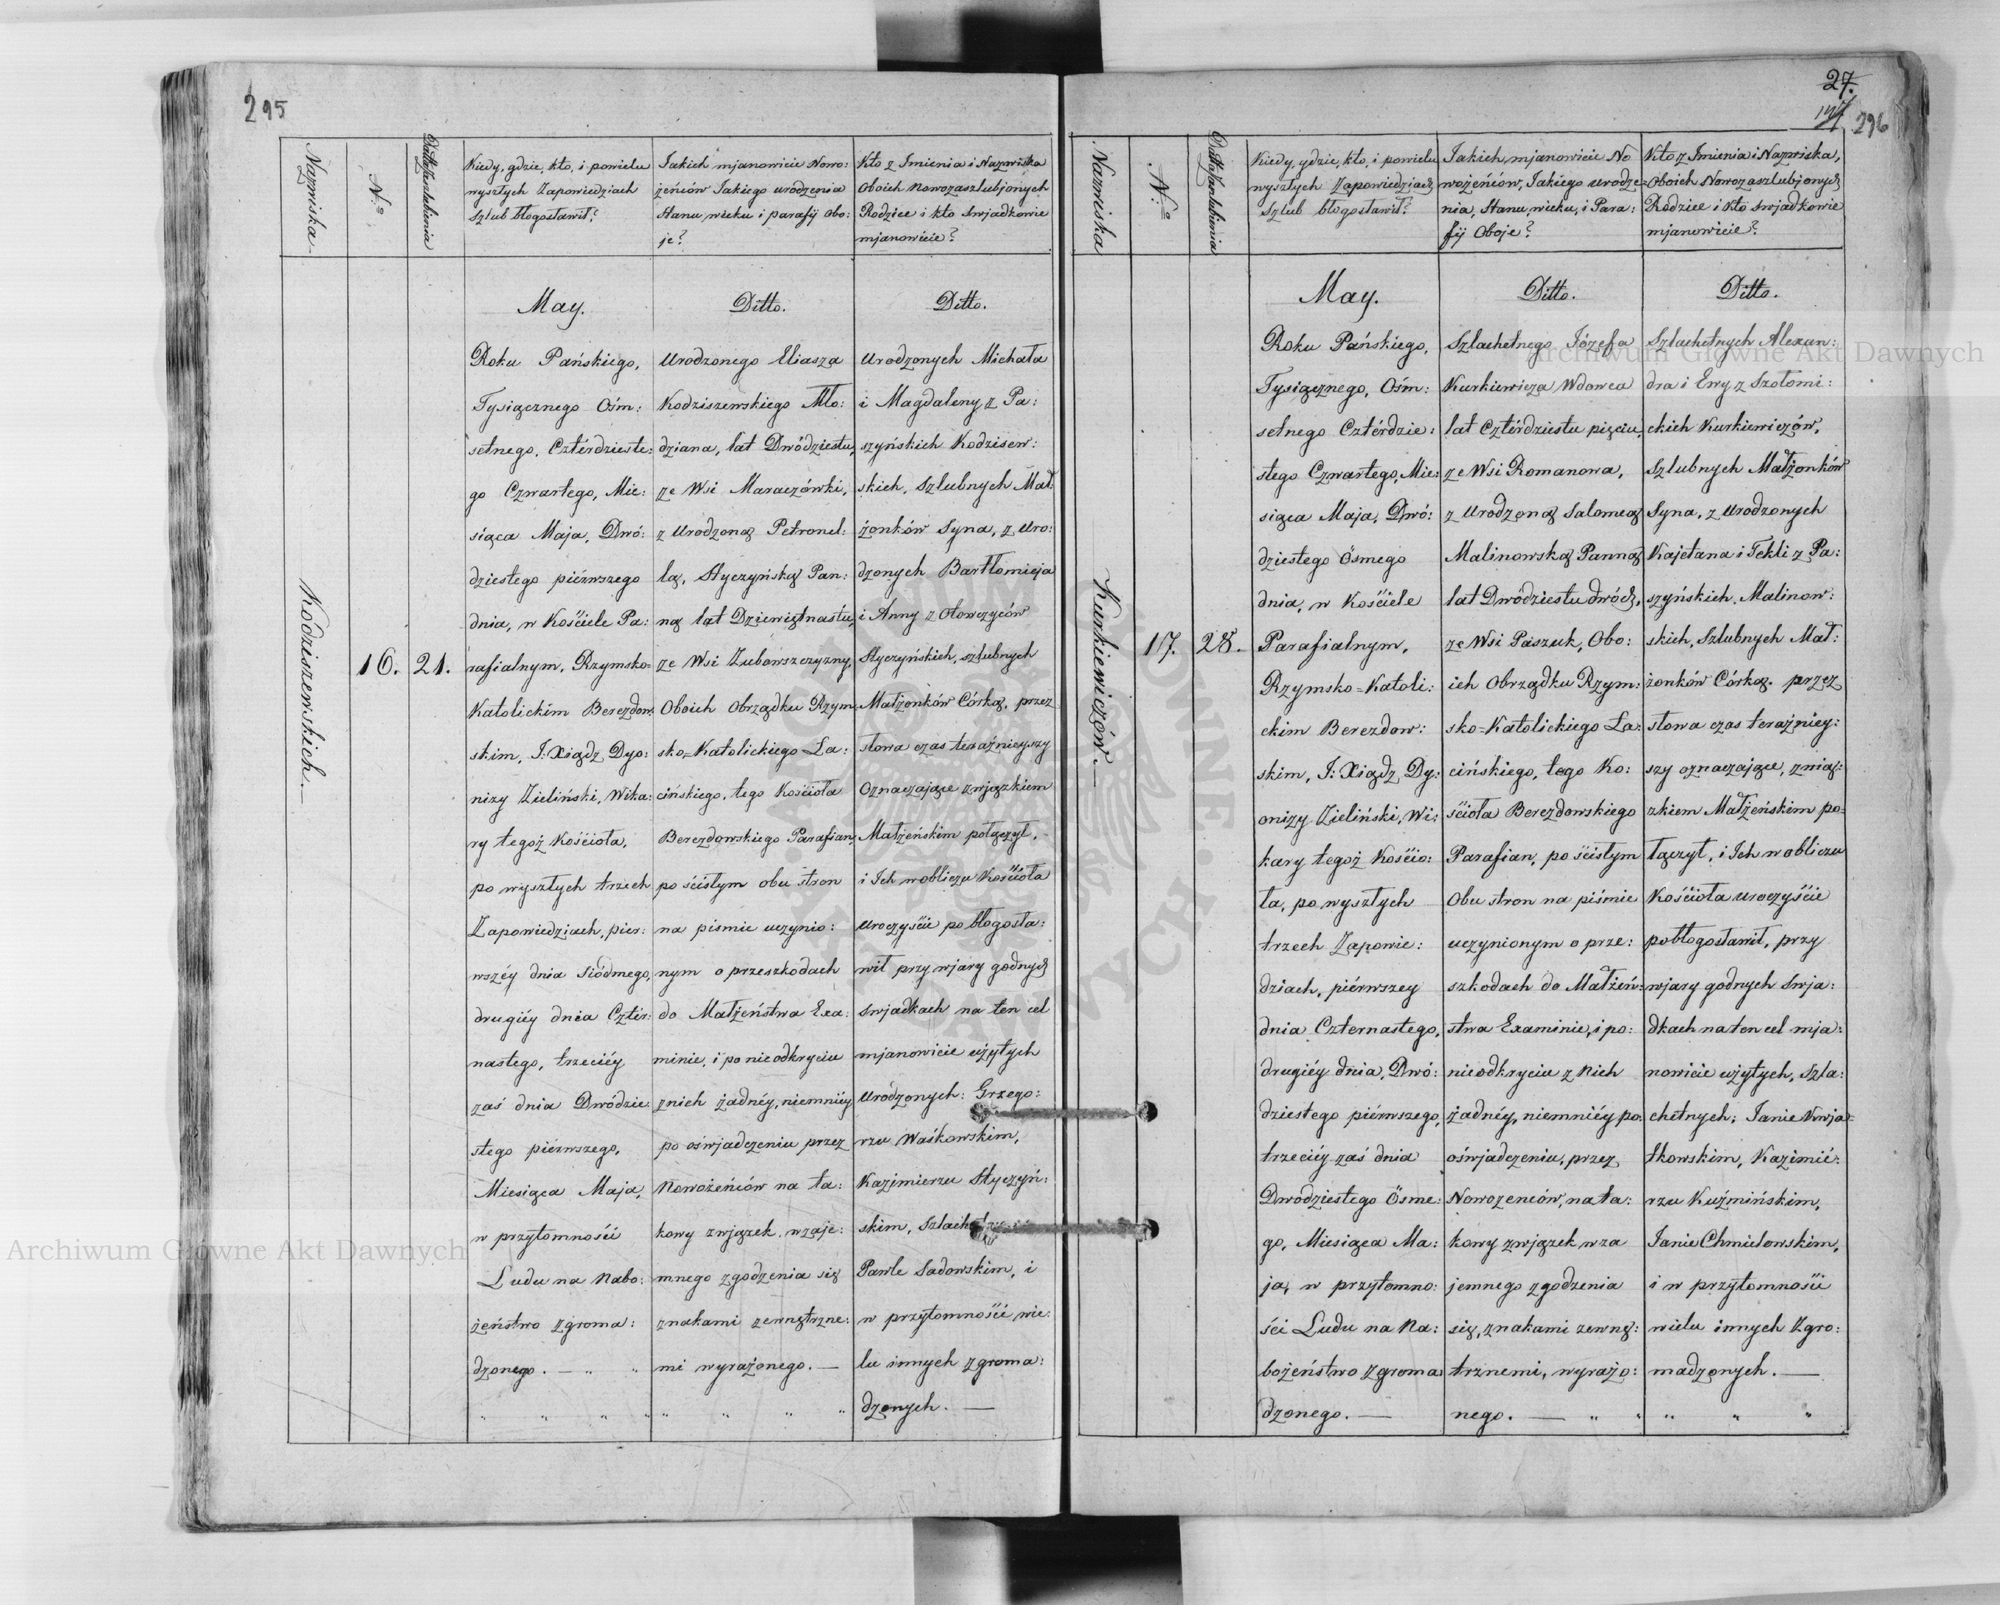 295
Nazwiska.
N.o
Data Zaślubienia
Kiedy, gdzie, kto, i powielu
wyszłych Zapowiedziach
Szlub błogosławił?
Jakich mjanowicie Nowo:
żeńców Jakiego urodzenia
Stanu, wieku i parafij obo:
je?
Kto z Imienia i Nazwiska
Oboich nowozaszlubjonych
Rodzice i kto swjadkowie
mjanowicie?
Kodziszewskich.—
16.
21.
May.
Roku Pańskiego,
Tysiącznego Ośm:
setnego, Cztérdzieste:
go Czwartego, Mie:
siąca Maja, Dwó:
dziestego piérwszego
dnia, w Kościele Pa:
rafialnym, Rzymsko=
Katolickim Berezdow:
skim, J: Xiądz Dyo:
nizy Zieliński, Wika:
ry tegoż Kościoła,
po wyszłych trzech
Zapowiedziach, pier:
wszéy dnia Siódmego,
drugiéy dnia Cztér:
nastego, trzeciéy
zaś dnia Dwódzie:
stego piérwszego,
Miesiąca Maja,
w przytomności
Ludu na Nabo:
żeństwo zgroma:
dzonego. — „ „
Ditto.
Urodzonego Eliasza
Kodziszewskiego Mło:
dziana, lat Dwódziestu,
ze Wsi Maraczówki,
z Urodzoną Petronel:
lą, Styczyńską Pan:
ną lat Dziewiętnastu,
ze Wsi Zubowszczyzny,
Oboich Obrządku Rzym:
sko=Katolickiego Ła:
cińskiego, tego Kościoła
Berezdowskiego Parafian,
po ścisłym obu stron
na pismie uczynio:
nym o przeszkodach
do Małżeństwa Exa:
minie, i po nieodkryciu
z nich żadnéy, niemniéy
po oświadczeniu przez
Nowożeńców na ta:
kowy związek, wzaje:
mnego zgodzenia się
znakami zewnętrzne:
mi wyrażonego. —
Ditto.
Urodzonych Michała
i Magdaleny z Pa:
szyńskich Kodzisew:
skich, Szlubnych Mał:
żonków Syna, z Uro:
dzonych Bartłomieja
i Anny z Ołowczyców
Styczyńskich, szlubnych
Małżonków Córką, przez
słowa czas teraźnieyszy
Oznaczające związkiem
Małżeńskim połączył,
i Ich w obliczu Kościoła
uroczyście pobłogosła:
wił przy wjary godnych
swjadkach na ten cel
mjanowicie użytych
Urodzonych: Grzego:
rzu Waśkowskim,
Kazimierzu Styczyń:
skim, Szlach
Pawle Sadowskim, i
w przytomności wie:
lu innych zgroma:
dzonych. —
27.
296
Nazwiska
N.o
Data Zaślubienia
Kiedy, gdzie, kto, i powielu
wyszłych Zapowiedziach
Szlub błogosławił?
Jakich, mjanowicie No
wożeńców, Jakiego urodze=
nia, Stanu, wieku, i Para:
fij Oboje?
Kto z Imienia i Nazwiska,
Oboich Nowozaszlubjonych
Rodzice i Kto swjadkowie
mjanowicie?
Kurkiewiczów.—
17.
28.
May.
Roku Pańskiego,
Tysiącznego, Ośm:
setnego Cztérdzie:
stego Czwartego, Mie:
siąca Maja, Dwó:
dziestego Ósmego
dnia, w Kościele
Parafialnym,
Rzymsko=Katoli:
ckim Berezdow:
skim, J: Xiądz Dy:
onizy Zieliński, Wi:
kary tegoż Kościo:
ła, po wyszłych
trzech Zapowie:
dziach, piérwszey
dnia Czternastego,
drugiéy dnia, Dwó:
dziestego piérwszego,
trzeciéy zaś dnia
Dwódziestego Ósme:
go, Miesiąca Ma:
ja, w przytomno:
ści Ludu na Na:
bożeństwo zgroma
dzonego. —
Ditto.
Szlachetnego Józefa
Kurkiewicza Wdowca
lat Cztérdziestu pięciu,
ze Wsi Romanowa,
z Urodzoną Salomeą
Malinowską Panną
lat Dwódziestu dwóch,
ze Wsi Paszuk, Obo:
ich Obrządku Rzym:
sko=Katolickiego Ła:
cińskiego, tego Ko:
ścioła Berezdowskiego
Parafian, po ścisłym
Obu stron na piśmie
uczynionym o prze:
szkodach do Małżeń:
stwa Examinie, i po:
nieodkryciu z nich
żadnéy, niemniéy po:
oświadczeniu, przez
Nowożeńców, na ta:
kowy związek wza
jemnego zgodzenia
się, znakami zewnę:
trznemi, wyrażo:
nego. — „ „
Ditto.
Szlachetnych Alexan:
dra i Ewy z Szołomi:
ckich Kurkiewiczów,
Szlubnych Małżonków
Syna, z Urodzonych
Kajetana i Tekli z Pa:
szyńskich, Malinow:
skich, Szlubnych Mał:
żonków Córką, przez
słowa czas teraźniey:
szy oznaczające, zwią:
zkiem Małżeńskim po=
łączył, i Ich w obliczu
Kościoła uroczyście
pobłogosławił, przy
wjary godnych swja:
dkach na ten cel mja:
nowicie użytych, Szla:
chetnych: Janie Kwja=
tkowskim, Kazimié:
rzu Kuźmińskim,
Janie Chmielowskim,
i w przytomności
wielu innych Zgro:
madzonych. —
Archiwum Główne Akt Dawnych
Archiwum Główne Akt Dawnych